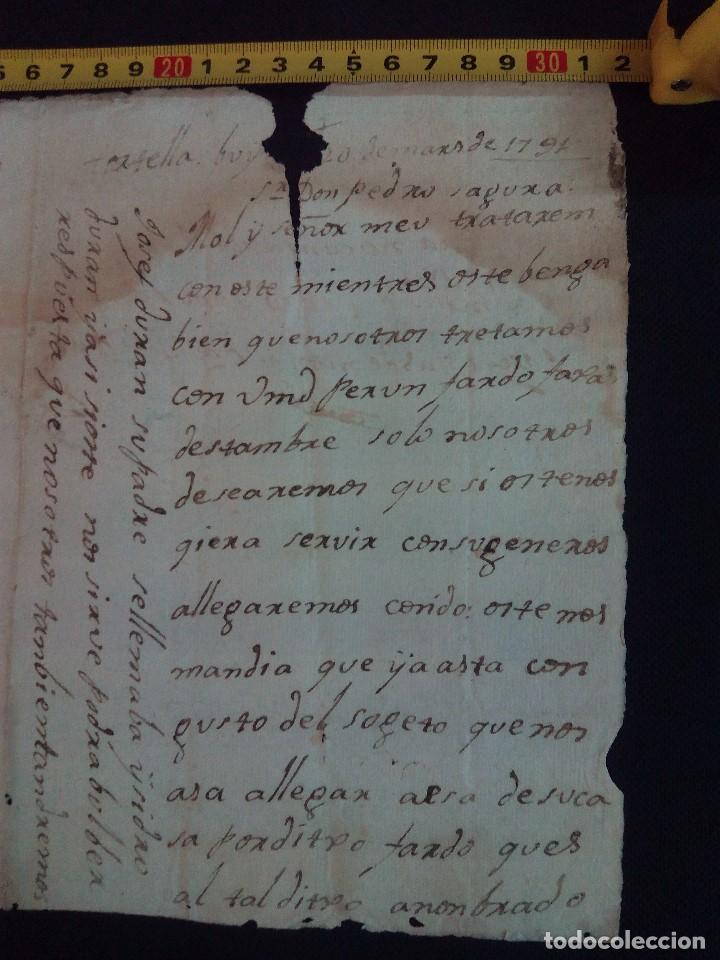 6 7 8 9 20 1 2 3 4 5 6 7 8 9 30 1 2
tortella. buy 20 de mars de 1791
Sr. Don pedro sagura.
Mol y señor meu trataxem
con oste mientres oste benga
bien que nosotros tretamos
con Vmd per un fardo fara
destambre solo nosotros
desearemos que si oste nos
giera servir consugeneros
allegaremos condo: oste nos
mandia que ya asta con
gusto del sogeto que nos
asa allegar aesa desuca
sa porditxo fardo ques
al tal ditxo anonbrado
Josef duran su padre sellemaba ysidro
duran y asi sjorre nos sirve podra bolber
respuesta que nosotros tanbien tandremos
todocoleccion.net